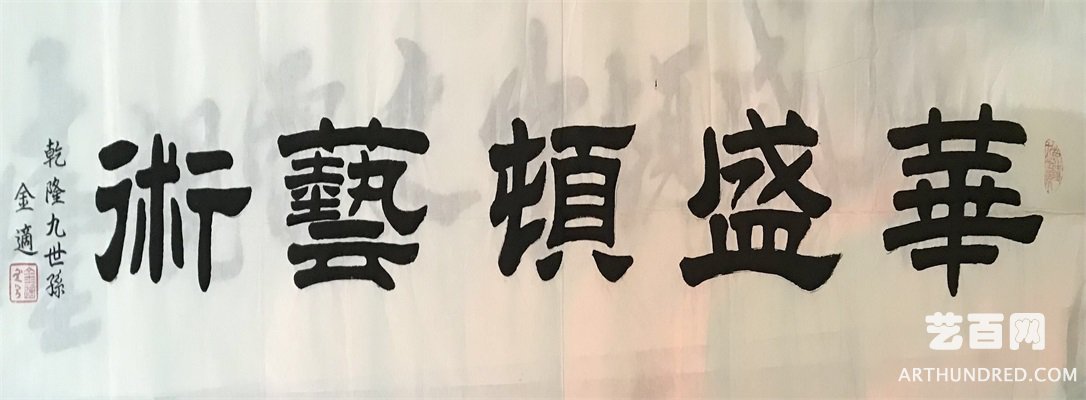 華盛頓藝術
乾隆九世孫
金適
艺百网
ARTHUNDRED.COM